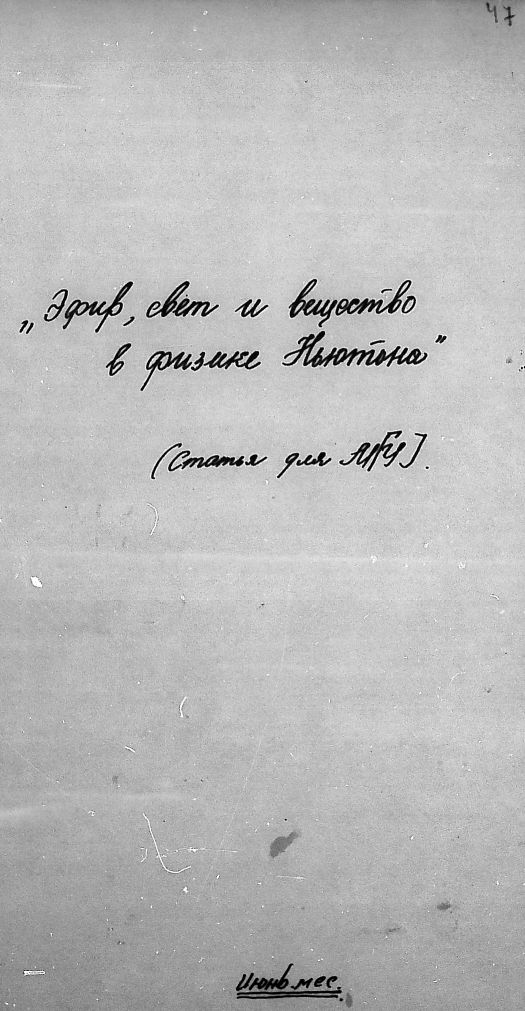 47
„Эфир, свет и вещество
в физике Ньютона"
(Статья для МГУ).
Июнь мес.